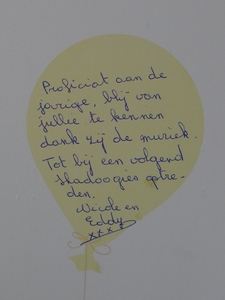 Proficiat aan de
jarige, blij van
jullie te kennen
dank zij de muziek.
Tot bij een volgend
Shadoogies optre-
den.
Nicole en
Eddy
xxx